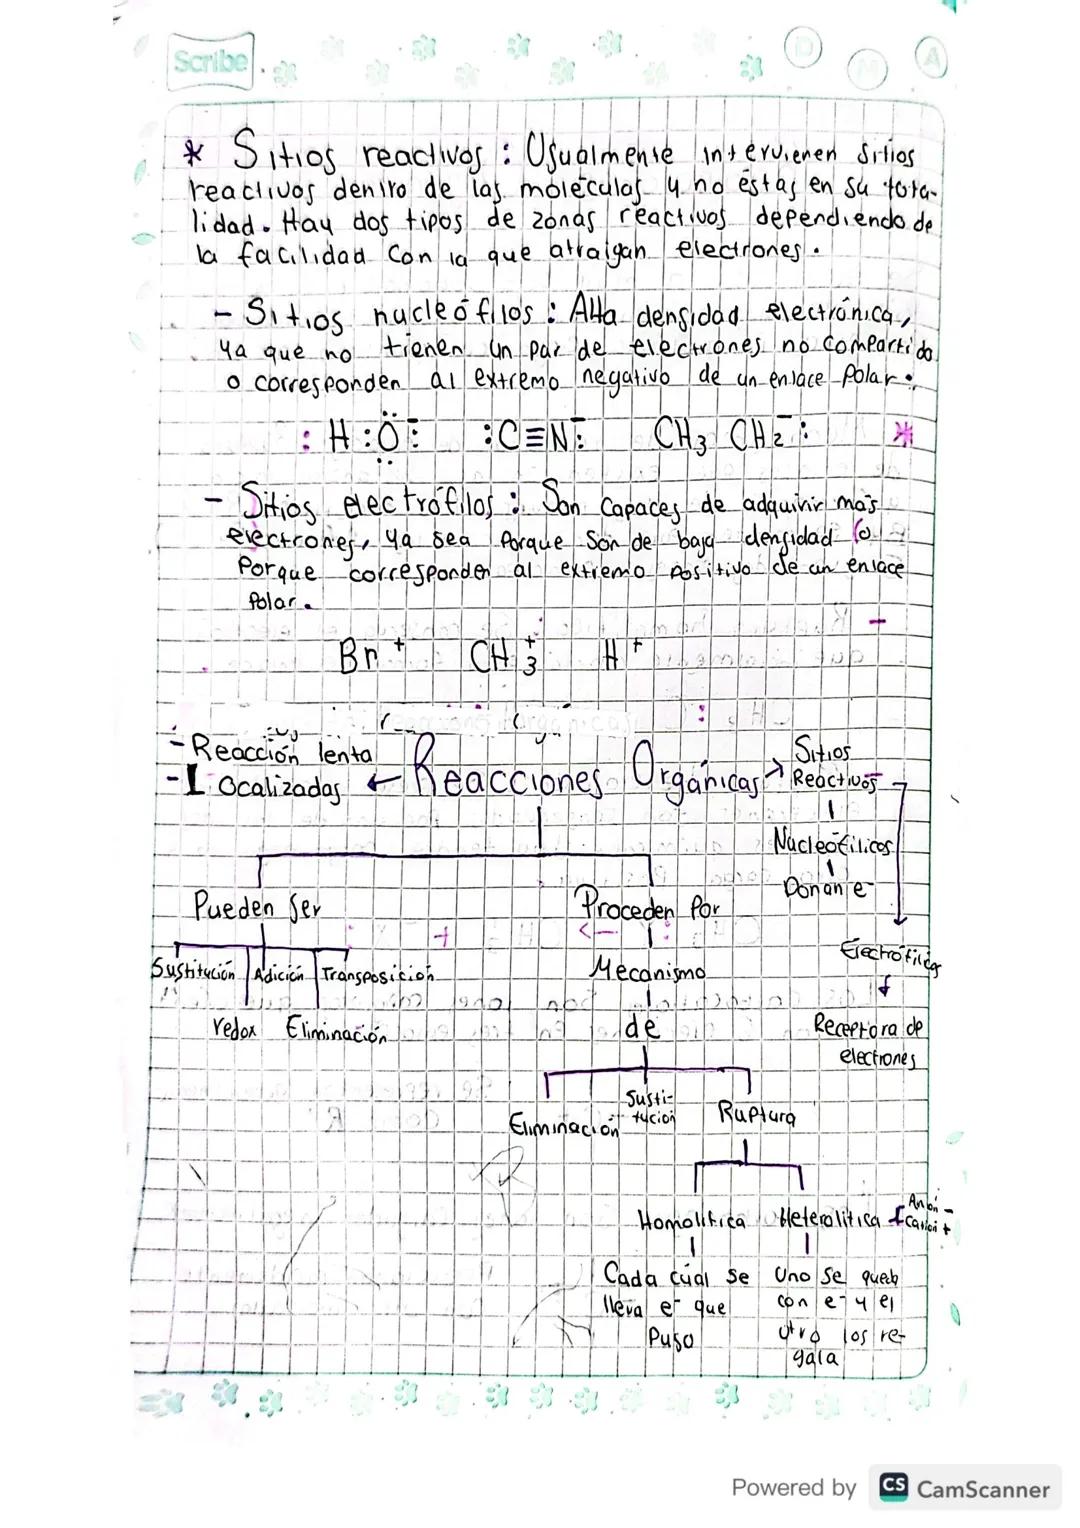 Scribe
D M A
* Sitios reactivos : Usualmente intervienen sitios
reactivos dentro de las moléculas y no estas en su tota-
lidad. Hay dos tipos de zonas reactivos dependiendo de
la facilidad con la que atraigan electrones.
- Sitios nucleófilos : Alta densidad electrónica,
ya que no tienen un par de electrones no compartido
o corresponden al extremo negativo de un enlace Polar.
: H :Ö: :C≡N: CH3 CH2⁻: *
- Sitios electrófilos : Son capaces de adquirir más
electrones, ya sea porque son de baja densidad o
Porque corresponden al extremo positivo de un enlace
Polar.
Br⁺ CH3⁺ H⁺
- Reacción lenta
- Localizadas ← Reacciones Orgánicas → Sitios
Reactivos
Nucleofílicos
Donan e⁻
Pueden ser Proceden Por
Electrofílica
Sustitución Adición Transposición Mecanismo
redox Eliminación de Receptora de
electrones
Eliminación Susti-
tución Ruptura
Homolítica Heterolítica Anión -
Catión +
Cada cual se Uno se queda
lleva e⁻ que con e⁻ y el
Puso otro los re-
gala
Powered by CS CamScanner